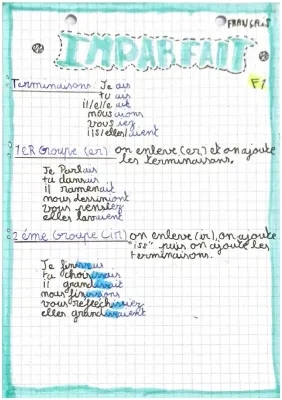 FRANÇAIS
IMPARFAIT
F1
Terminaisons: Je ais
tu ais
il/elle ait
nous ions
vous iez
ils/elles aient
1ER Groupe (er) on enleve (er) et on ajoute
les terminaisons.
Je Parlais
tu dansais
il ramenait
nous dessinions
vous pensiez
elles lavaient
2 éme Groupe (ir) on enleve (ir), on ajoute
"iss" puis on ajoute les
terminaisons.
Je finissais
tu choisissais
il grandissait
nous finissions
vous reflechissiez
elles grandissaient